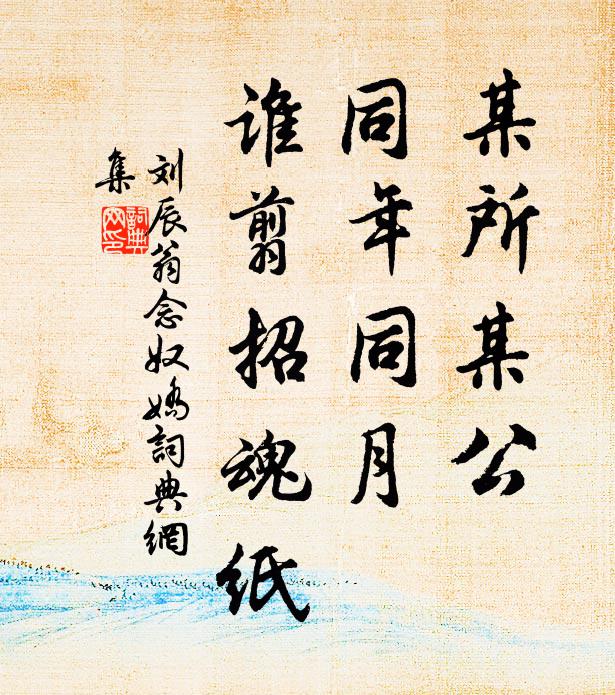 某所某公
同年同月
谁剪招魂纸
刘辰翁念奴娇詞典網
集
詞典
网印